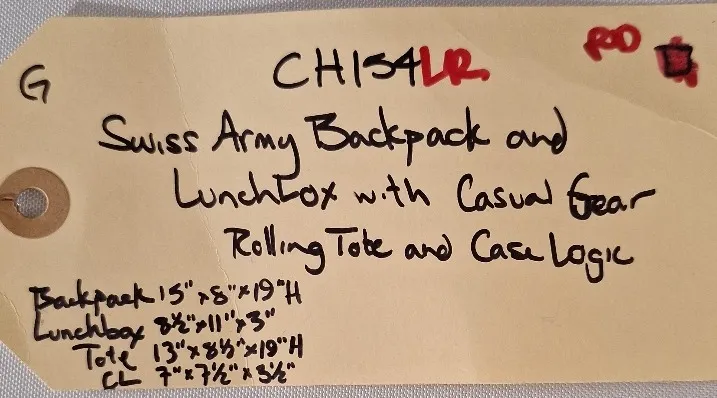 G
CH154LR
ROD
Swiss Army Backpack and
Lunchbox with Casual Gear
Rolling Tote and Case Logic
Backpack 15" x 8" x 19"H
Lunchbox 8½" x 11" x 3"
Tote 13" x 8½" x 19"H
CL 7" x 7½" x 3½"